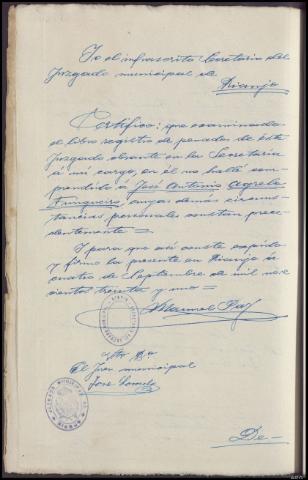 Yo el infrascrito Secretario del
Juzgado municipal de
Rianjo
Certifico: que examinado
el libro registro de penados de este
Juzgado obrante en la Secretaría
á mi cargo, en él no hallé com-
prendido á José Antonio Agrelo
cuyas demás circuns-
tancias personales constan prece-
dentemente =
Y para que así conste expido
y firmo la presente en Rianjo á
cuatro de Septembre de mil nove-
cientos treinta y uno =
Manuel
Vto Bº
El Juez municipal
José
De—